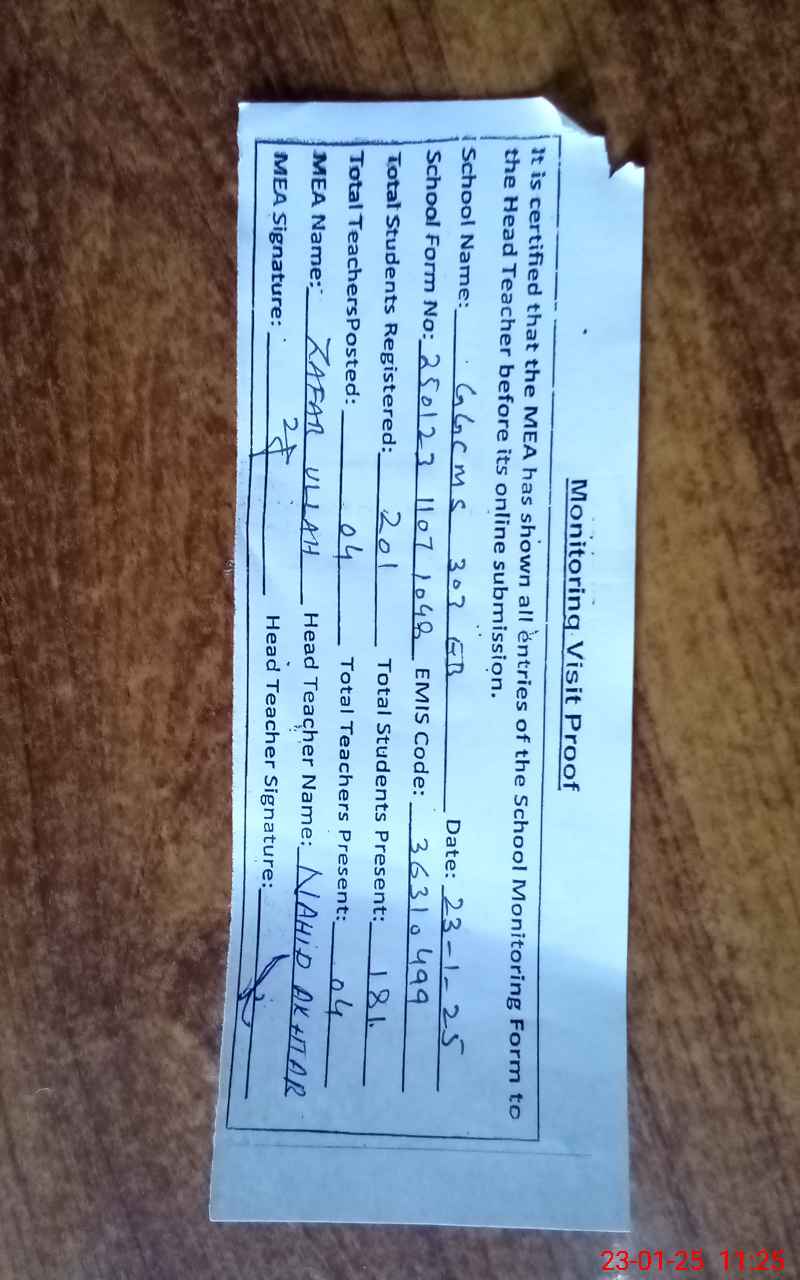 Monitoring Visit Proof
It is certified that the MEA has shown all entries of the School Monitoring Form to
the Head Teacher before its online submission.
School Name: GGCMS 303 GB Date: 23-1-25
School Form No: 250123 1107 1048 EMIS Code: 36310499
Total Students Registered: 201 Total Students Present: 181
Total TeachersPosted: 04 Total Teachers Present: 04
MEA Name: ZAFAR ULLAH Head Teacher Name: NAHID AKHTAR
MEA Signature: Head Teacher Signature:
23-01-25 11:25